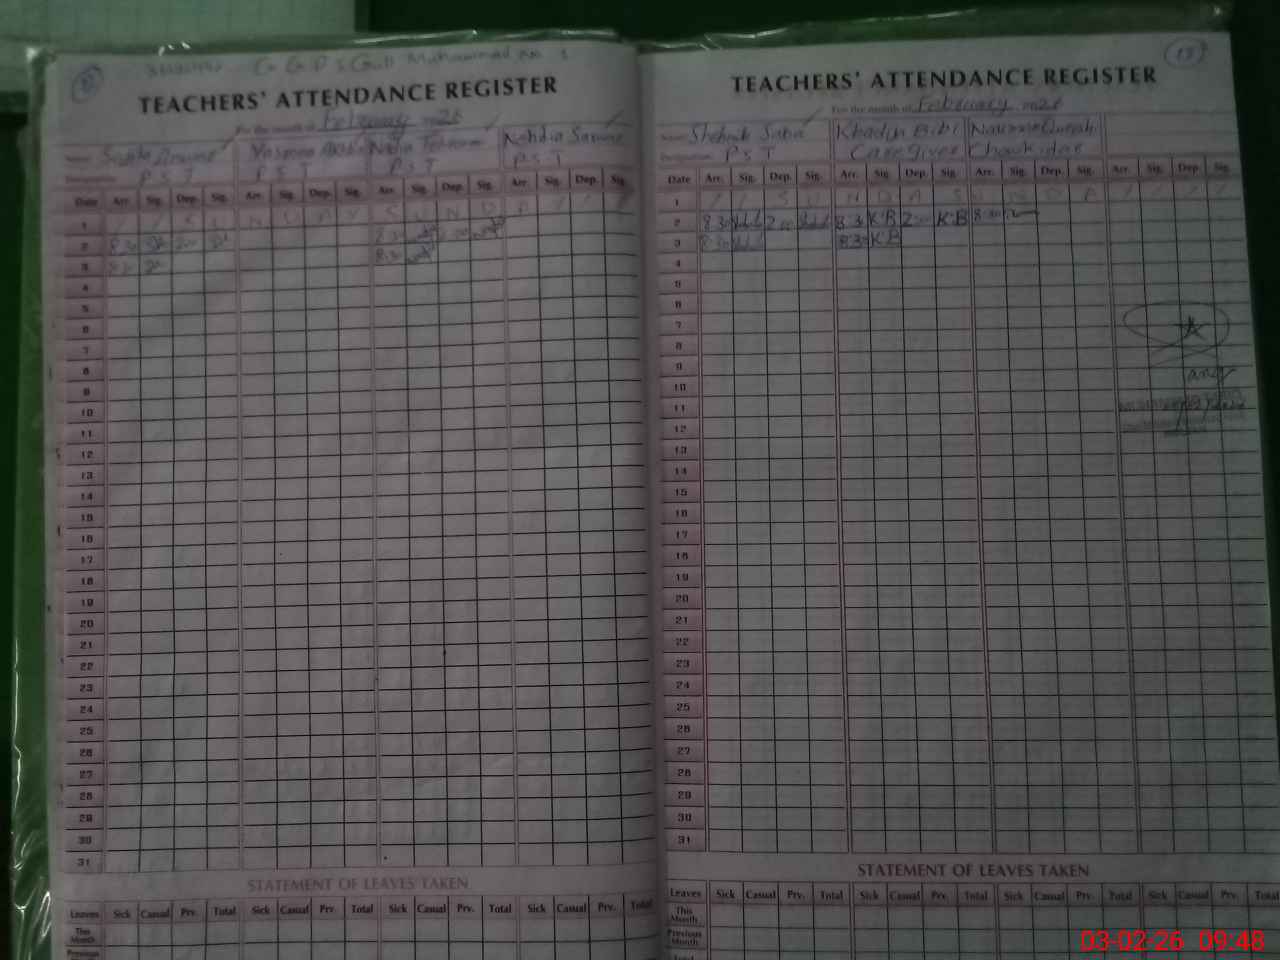 G G P S Gull Muhammad no 1
TEACHERS' ATTENDANCE REGISTER
For the month of February 2026
Name
P.S.T P.S.T P.S.T P.S.T
Date Arr. Sig. Dep. Sig. Arr. Sig. Dep. Sig. Arr. Sig. Dep. Sig. Arr. Sig. Dep. Sig.
1 S U N D A Y S U N D A Y
2 8:30 2:00 8:30 2:00
3 8:30 8:30
4
5
6
7
8
9
10
11
12
13
14
15
16
17
18
19
20
21
22
23
24
25
26
27
28
29
30
31
STATEMENT OF LEAVES TAKEN
Leaves Sick Casual Prv. Total Sick Casual Prv. Total Sick Casual Prv. Total Sick Casual Prv. Total
This Month
Previous
TEACHERS' ATTENDANCE REGISTER
For the month of February 2026
Name Khadija Bibi
Designation P S T Care giver Chowkidar
Date Arr. Sig. Dep. Sig. Arr. Sig. Dep. Sig. Arr. Sig. Dep. Sig. Arr. Sig. Dep. Sig.
1 S U N D A S U N D A
2 8:30 2:00 8:30 K.B 2:00 K.B 8:30
3 8:30 8:30 K B
4
5
6
7
8
9
10
11
12
13
14
15
16
17
18
19
20
21
22
23
24
25
26
27
28
29
30
31
STATEMENT OF LEAVES TAKEN
Leaves Sick Casual Prv. Total Sick Casual Prv. Total Sick Casual Prv. Total Sick Casual Prv. Total
This Month
Previous Month
Total
03-02-26 09:48